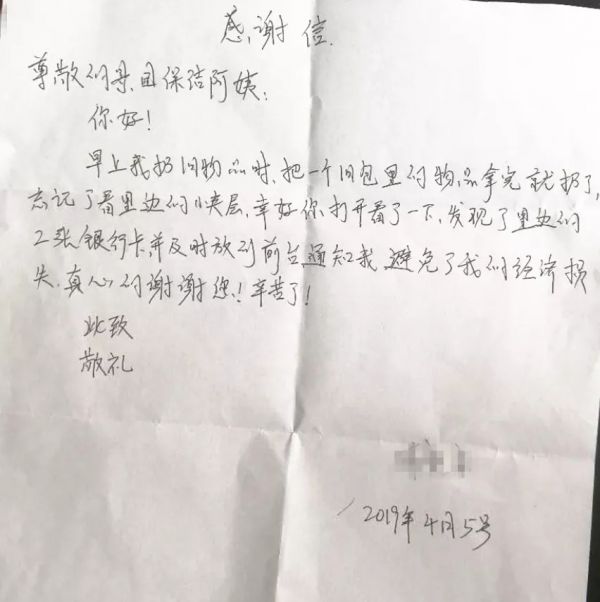 感谢信.
尊敬的母团保洁阿姨:
你好!
早上我扔旧物品时,把一个旧包里的物品拿完就扔了,
忘记了看里边的小夹层,幸好你打开看了一下,发现了里边的
2张银行卡,并及时放到前台通知我,避免了我的经济损
失.真心的谢谢您!辛苦了!
此致
敬礼
2019年4月5号